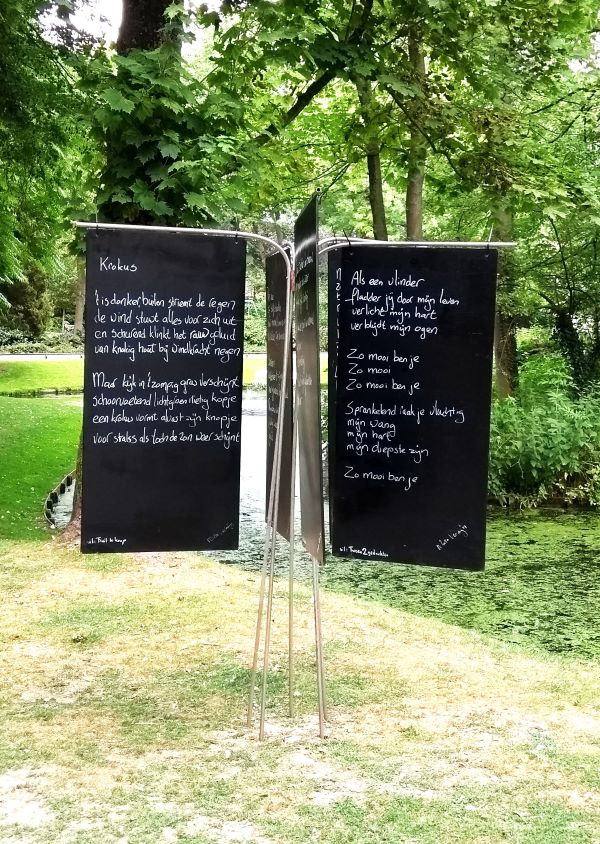 Krokus
't is donker, buiten striemt de regen
de wind stuwt alles voor zich uit
en schurend klinkt het rauw geluid
van knokig hout bij windkracht negen
Maar kijk in 't zompig gras verschijnt
schoorvoetend lichtgroen rietig kopje
een krokus vormt alvast zijn knopje
voor straks als toch de zon weer schijnt
uit:
Als een vlinder
fladder jij door mijn leven
verlicht mijn hart
verblijdt mijn ogen
Zo mooi ben je
Zo mooi
Zo mooi ben je
Sprankelend raak je vluchtig
mijn wang
mijn hart
mijn diepste zijn
Zo mooi ben je
uit: Tussen 2 gedachten